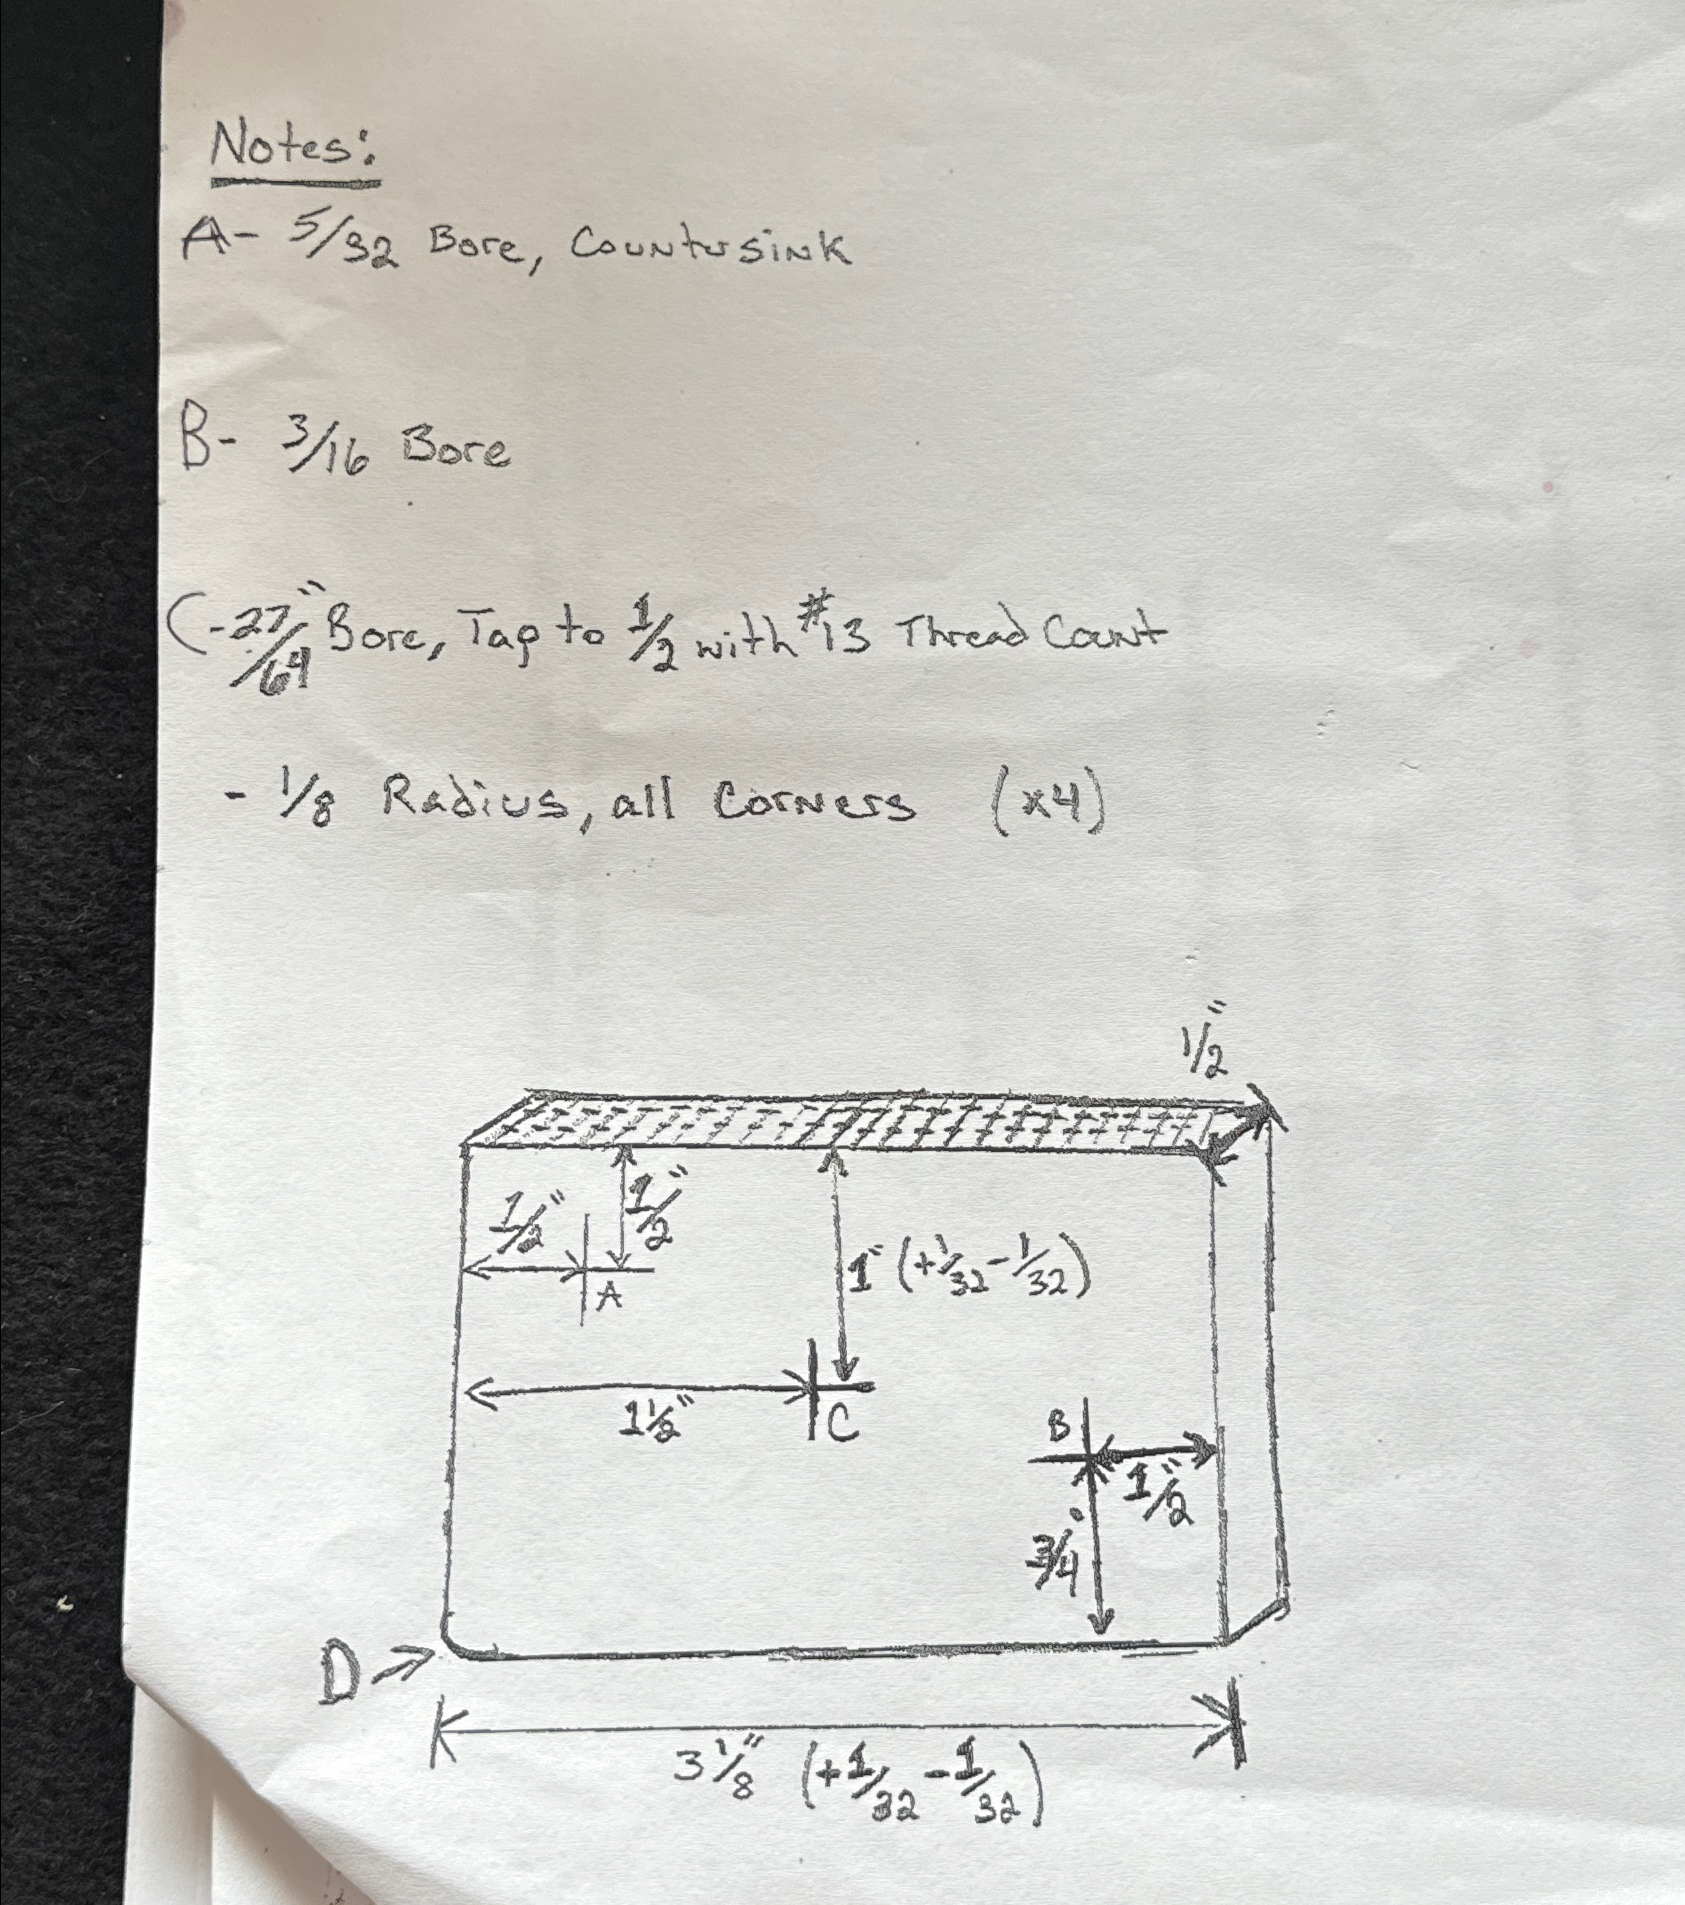 Notes:
A- 5/32 Bore, Countersink
B- 3/16 Bore
C- 27/64" Bore, Tap to 1/2 with #13 Thread Count
- 1/8 Radius, all Corners (x4)
1/2"
1/2"
1/2"
A
1" (+1/32 -1/32)
1 1/2"
C
B
1/2"
3/4"
D
3 1/8" (+1/32 -1/32)